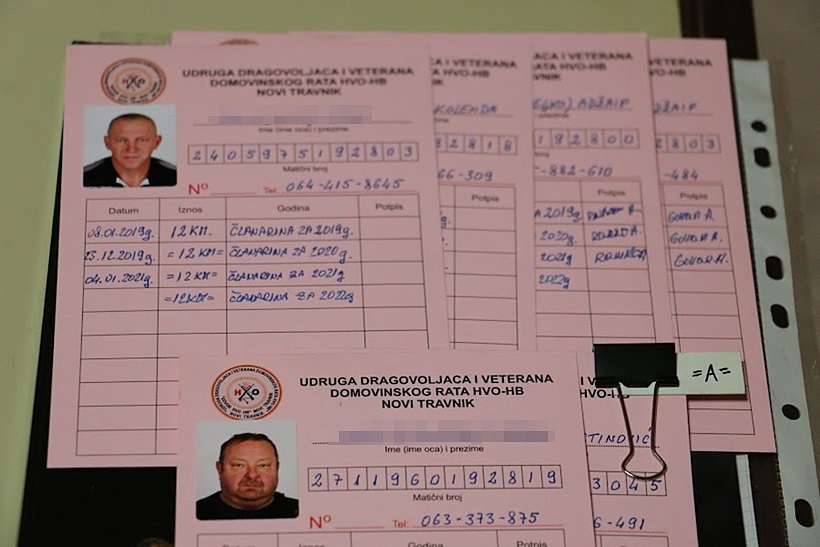 UDRUGA DRAGOVOLJACA I VETERANA
DOMOVINSKOG RATA HVO-HB
NOVI TRAVNIK
Ime (ime oca) i prezime
2405975192803
Matični broj
Nº Tel: 064-415-8645
Datum Iznos Godina Potpis
08.01.2019g. 12 KM. ČLANARINA ZA 2019g.
23.12.2019g. =12 KM= ČLANARINA ZA 2020g.
04.01.2021g. =12 KM= ČLANARINA ZA 2021g
=12KM= ČLANARINA ZA 2022g
VETERANA
HVO-HB
IK
KOLENDA
92818
66-309
Potpis
JACA I VETERANA
RATA HVO-HB
VNIK
ADŽAIP
192800
-882-610
Potpis
A 2019g.
2020g.
2021g
2022g
VETERANA
HVO-HB
DŽAIP
2803
-484
Potpis
=A=
UDRUGA DRAGOVOLJACA I VETERANA
DOMOVINSKOG RATA HVO-HB
NOVI TRAVNIK
Ime (ime oca) i prezime
2711960192819
Matični broj
Nº Tel: 063-373-875
Datum Iznos Godina Potpis
HVO-HB
TINOVIĆ
3045
6-491